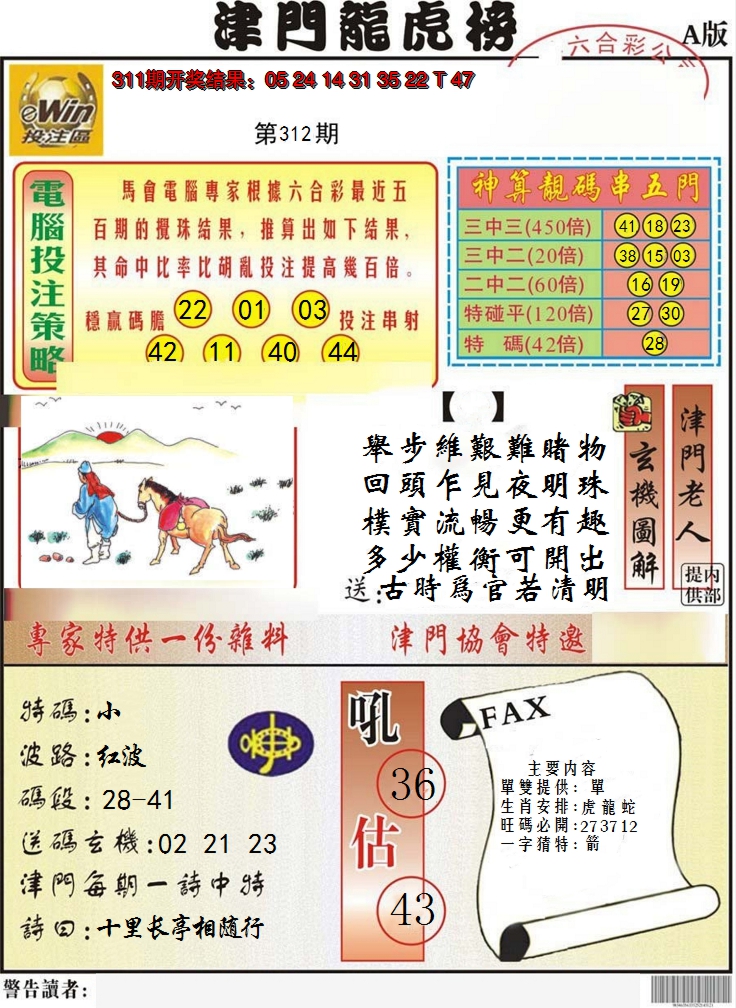 津門龍虎榜
六合彩公
A版
311期开奖结果：05 24 14 31 35 22 T 47
eWin
投注區
第312期
電腦投注策略
馬會電腦專家根據六合彩最近五
百期的攪珠结果，推算出如下结果，
其命中比率比胡亂投注提高幾百倍。
穩赢碼膽 22 01 03 投注串射
42 11 40 44
神算靚碼串五門
三中三(450倍) 41 18 23
三中二(20倍) 38 15 03
二中二(60倍) 16 19
特碰平(120倍) 27 30
特 碼(42倍) 28
【 】
舉步維艱難賭物
回頭乍見夜明珠
樸實流暢更有趣
多少權衡可開出
送：古時爲官若清明
玄機圖解
津門老人
内部提供
專家特供一份雜料
津門協會特邀
特碼：小
波路：红波
碼段：28-41
送碼玄機：02 21 23
津門每期一詩中特
詩曰：十里长亭相随行
吼
36
估
43
FAX
主要内容
單雙提供：單
生肖安排：虎龍蛇
旺碼必開：273712
一字猜特：箭
警告讀者：